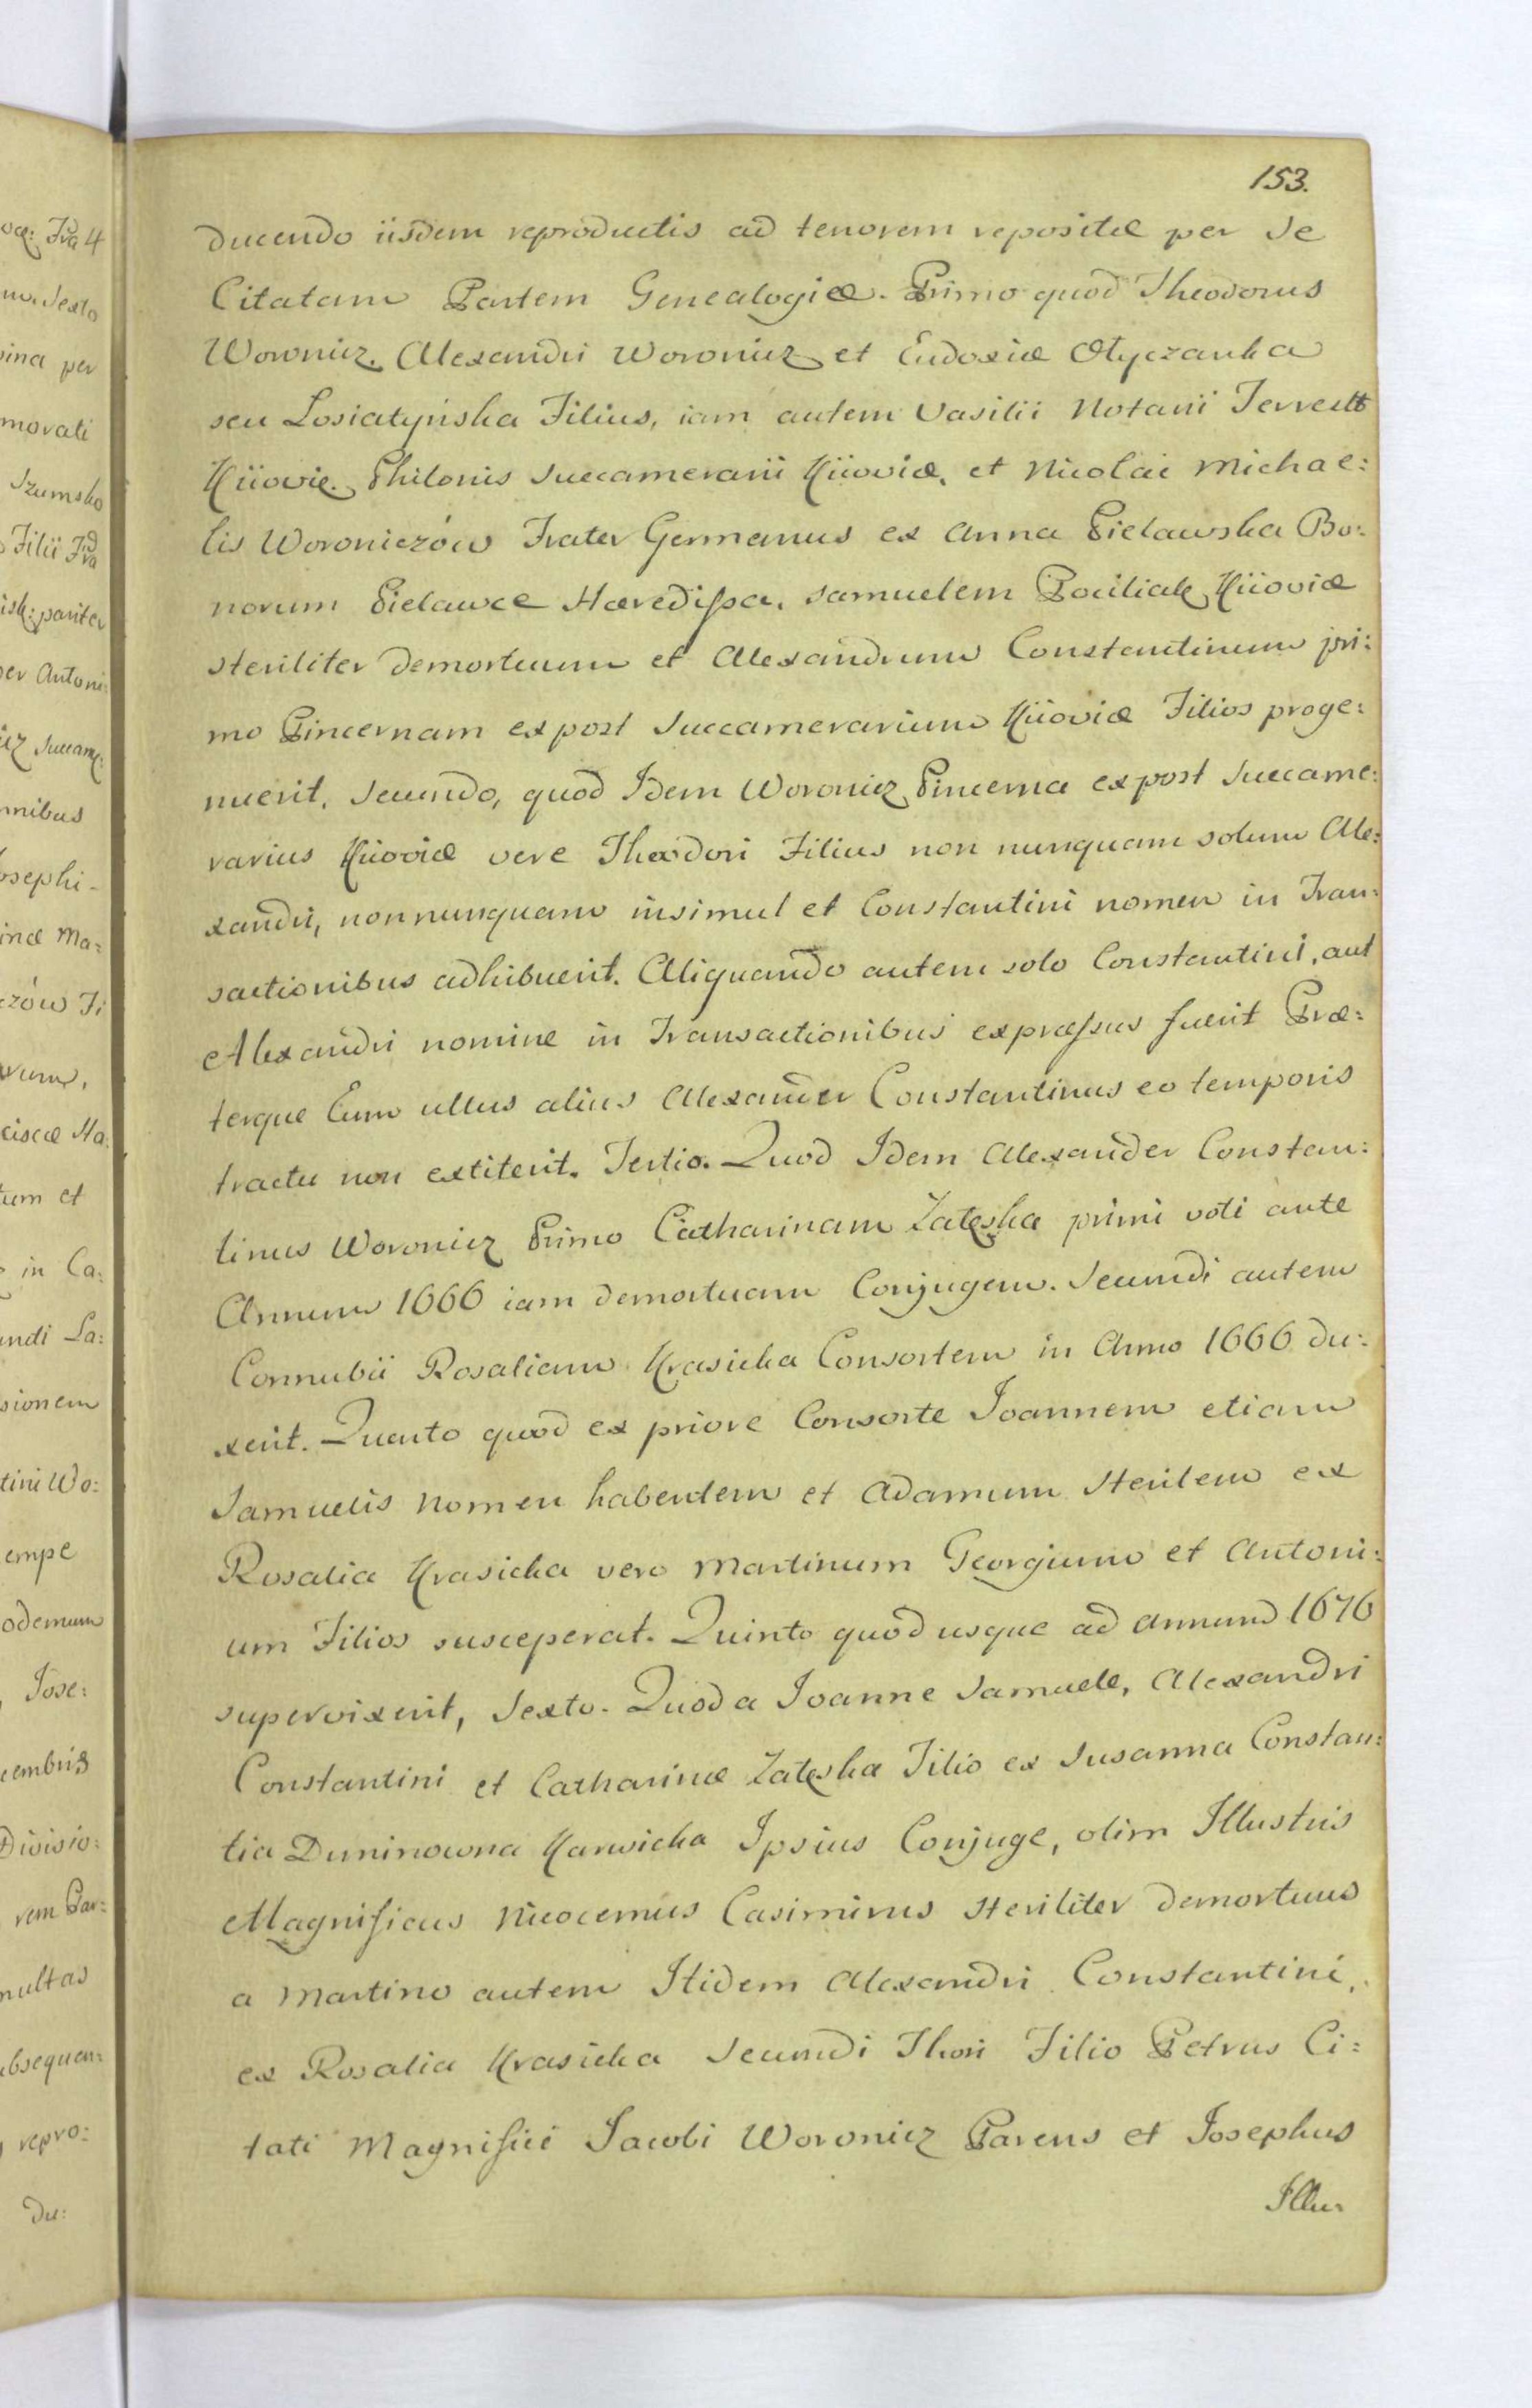 153.
ducendo iisdem reproductis ad tenorem repositæ per se
Citatam Partem Genealogiæ. Primo quod Theodorus
Woronicz. Alexandri Woronicz et Eudoxiæ Olyczanka
seu Losiatyńska Filius, iam autem Vasilii Notarii Terrestr
Kiiovie. Philonis Succamerarii Kiioviæ, et Nicolai Michae:
lis Woroniczów Frater Germanus ex Anna Pielawska Bo:
norum Pielawce Hæredissa, Samuelem Pociliatę Kiioviæ
steriliter demortuum et Alexandrum Constantinum pri:
mo Pincernam ex post Succamerarium Kiioviæ Filios proge:
nuerit, Secundo, quod Idem Woronicz Pincerna ex post Succame:
rarius Kiioviæ vere Theodori Filius non nunquam solum Ale:
xandri, non nunquam insimul et Constantini nomen in Tran:
sactionibus adhibuerit. Aliquando autem solo Constantini, aut
Alexandri nomine in Transactionibus expræssus fuerit Præ:
terque Eum ullus alius Alexander Constantinus eo temporis
tractu non extiterit. Tertio. Quod Idem Alexander Constan:
tinus Woronicz Primo Catharinam Zaleska primi voti ante
Annum 1666 iam demortuam Conjugem. Secundi autem
Connubii Rosaliam Krasicka Consortem in Anno 1666 du:
xerit. Quarto quod ex priore Consorte Joannem etiam
Samuelis Nomen habentem et Adamum Sterilem ex
Rosalia Krasicka vero Martinum Georgium et Antoni:
um Filios susceperat. Quinto quod usque ad annum 1676
supervixerit, Sexto. Quod a Joanne Samuele, Alexandri
Constantini et Catharinæ Zaleska Filio ex Susanna Constan:
tia Duninowna Karwicka Ipsius Conjuge, olim Illustris
Magnificus Nicocemus Casimirus steriliter demortuus
a Martino autem Itidem Alexandri Constantini,
ex Rosalia Krasicka Secundi Thori Filio Petrus Ci:
tati Magnifici Jacobi Woronicz Parens et Josephus
Illu: